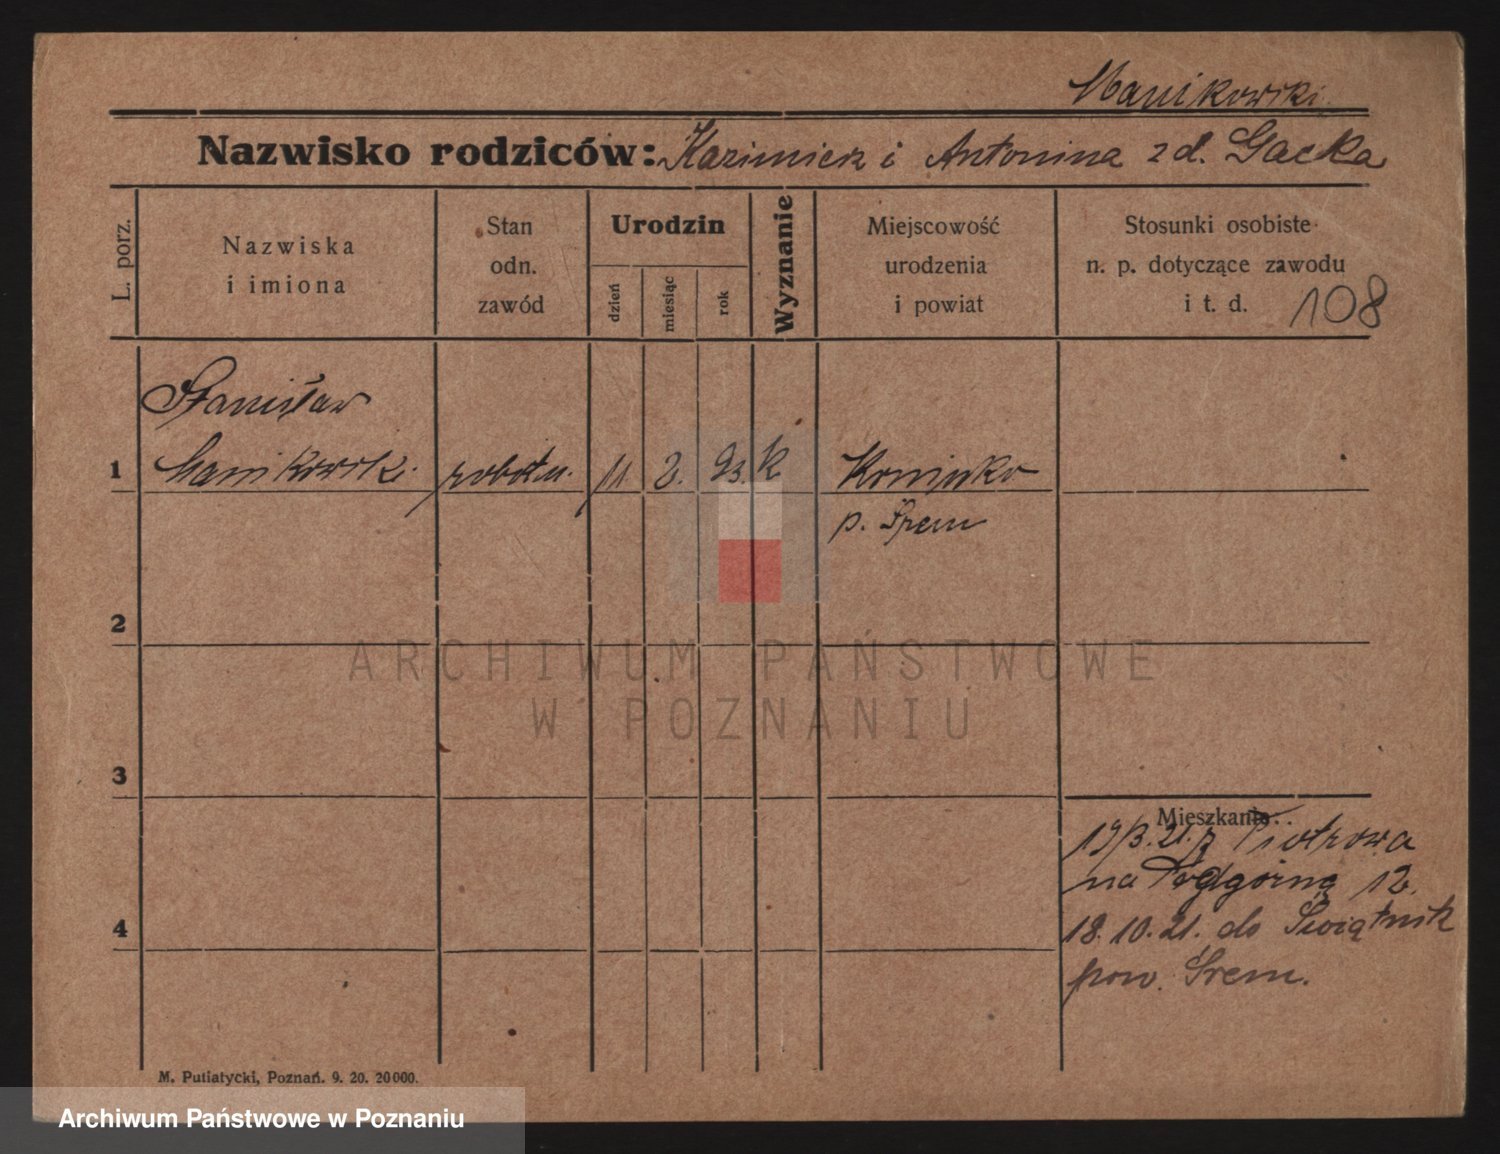 Manikowski
Nazwisko rodziców: Kazimierz i Antonina z d. Gacka
L. porz.
Nazwiska
i imiona
Stan
odn.
zawód
Urodzin
dzień
miesiąc
rok
Wyznanie
Miejscowość
urodzenia
i powiat
Stosunki osobiste
n. p. dotyczące zawodu
i t. d. 108
Stanisław
1 Manikowski robotn. 11. 2. 93. k Koninko
p. Śrem
2
ARCHIWUM PAŃSTWOWE
W POZNANIU
3
Mieszkanie:
19/3.21. z Piotrowa
na Podgórną 12.
4
18.10.21. do Świątnik
pow. Śrem.
M. Putiatycki, Poznań. 9. 20. 20000.
Archiwum Państwowe w Poznaniu